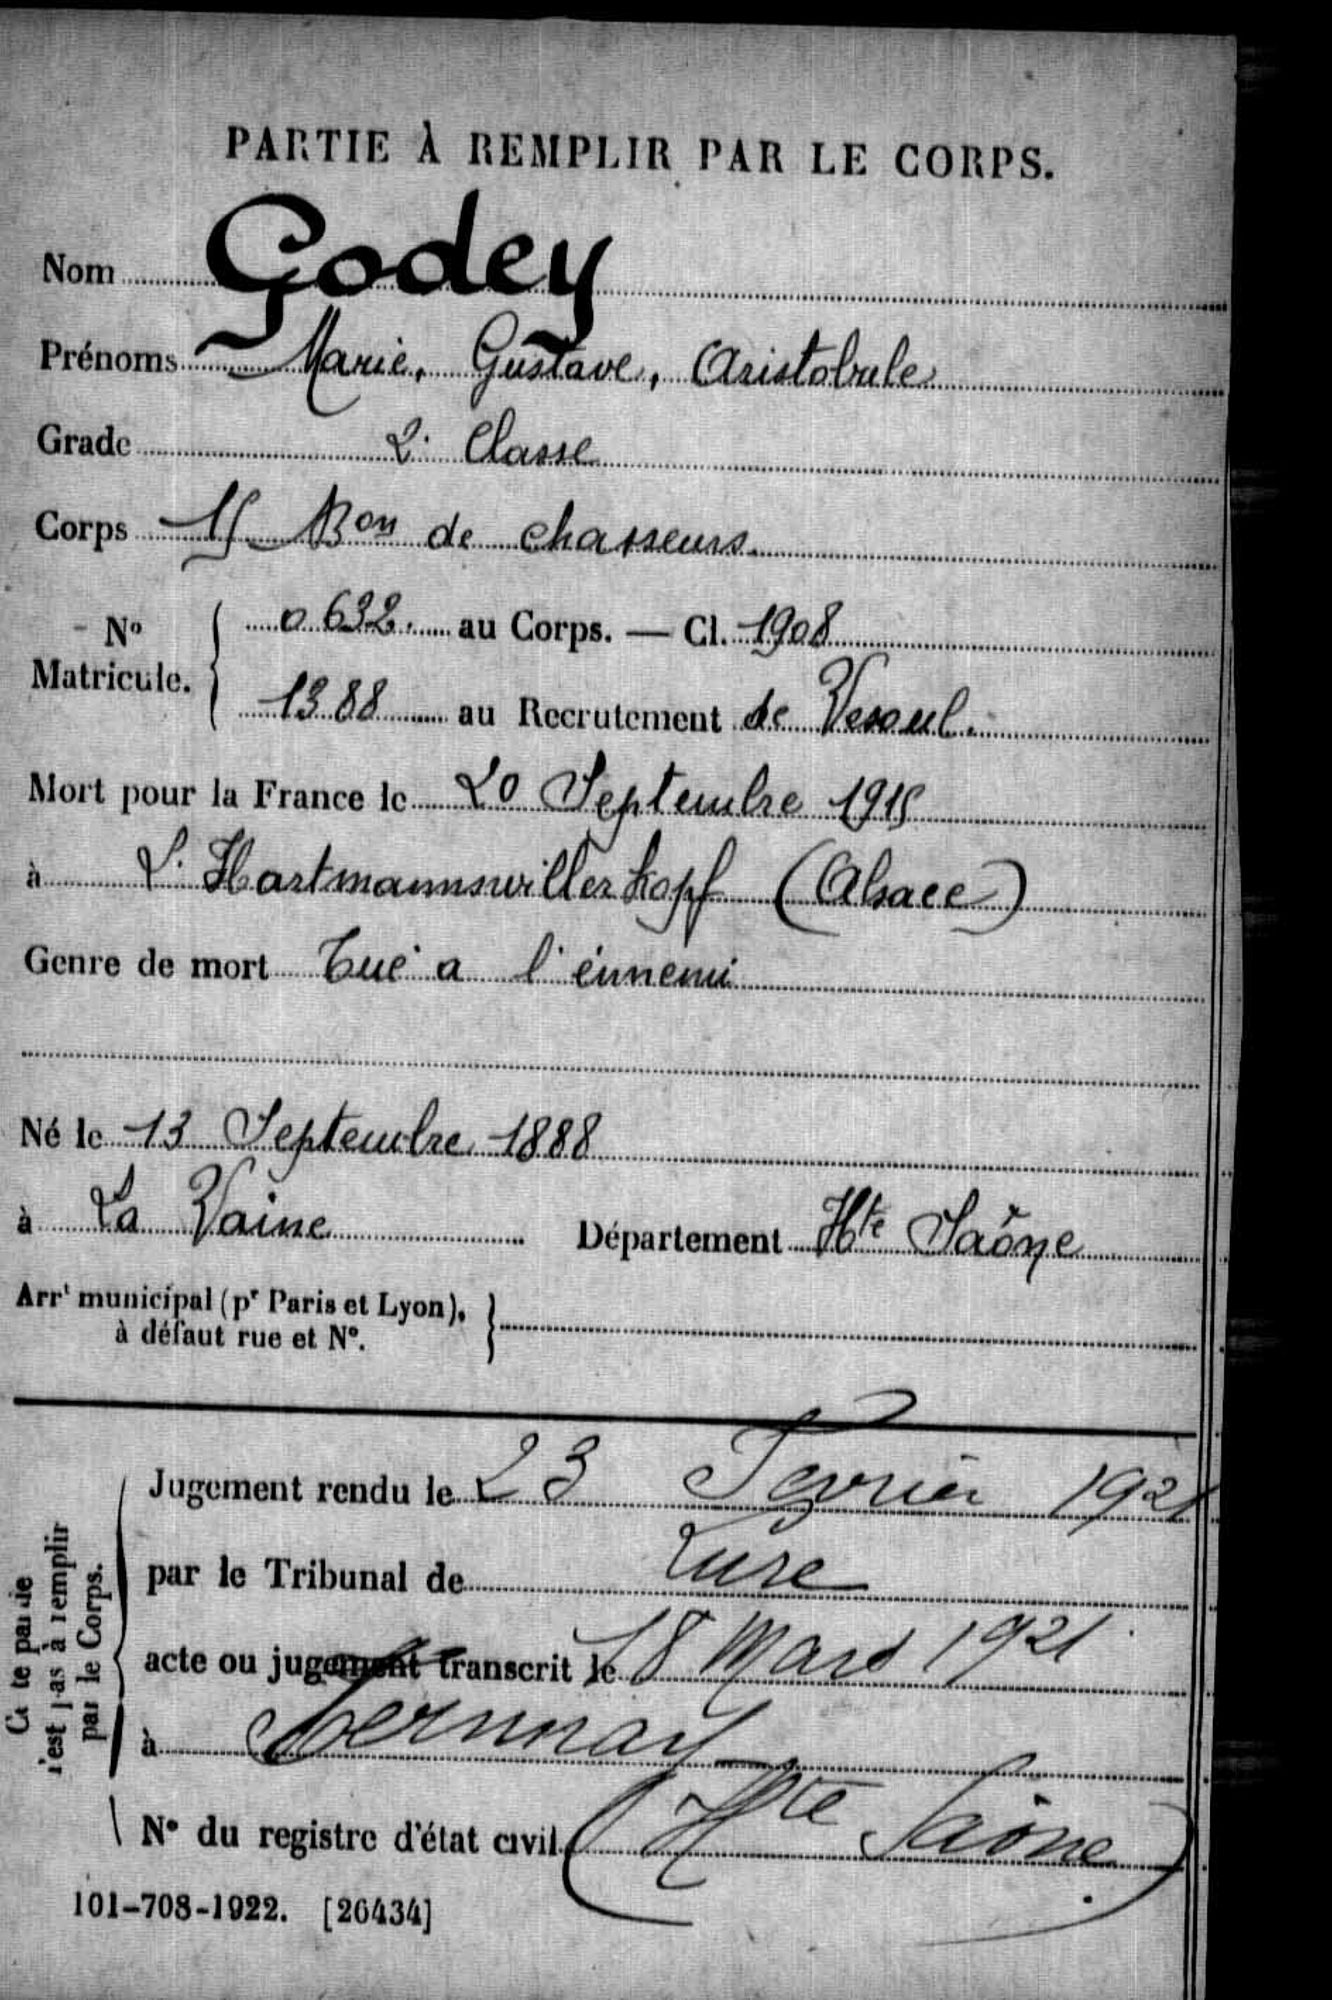 PARTIE À REMPLIR PAR LE CORPS.
Nom Godey
Prénoms Marie, Gustave, Aristobule
Grade 2e Classe
Corps 15 Bon de chasseurs
No Matricule. 0632. au Corps. — Cl. 1908
1388 au Recrutement de Vesoul.
Mort pour la France le 20 Septembre 1915
à L'Hartmannswillerkopf (Alsace)
Genre de mort Tué a l'énnemi
Né le 13 Septembre 1888
à La Vaine Département Hte Saône
Arrt municipal (pr Paris et Lyon),
à défaut rue et No.
Cette partie
n'est pas à remplir
par le Corps.
Jugement rendu le 23 Fevrier 1921
par le Tribunal de Lure
acte ou jugement transcrit le 18 Mars 1921
à
No du registre d'état civil (Hte Saône)
101-708-1922. [26434]